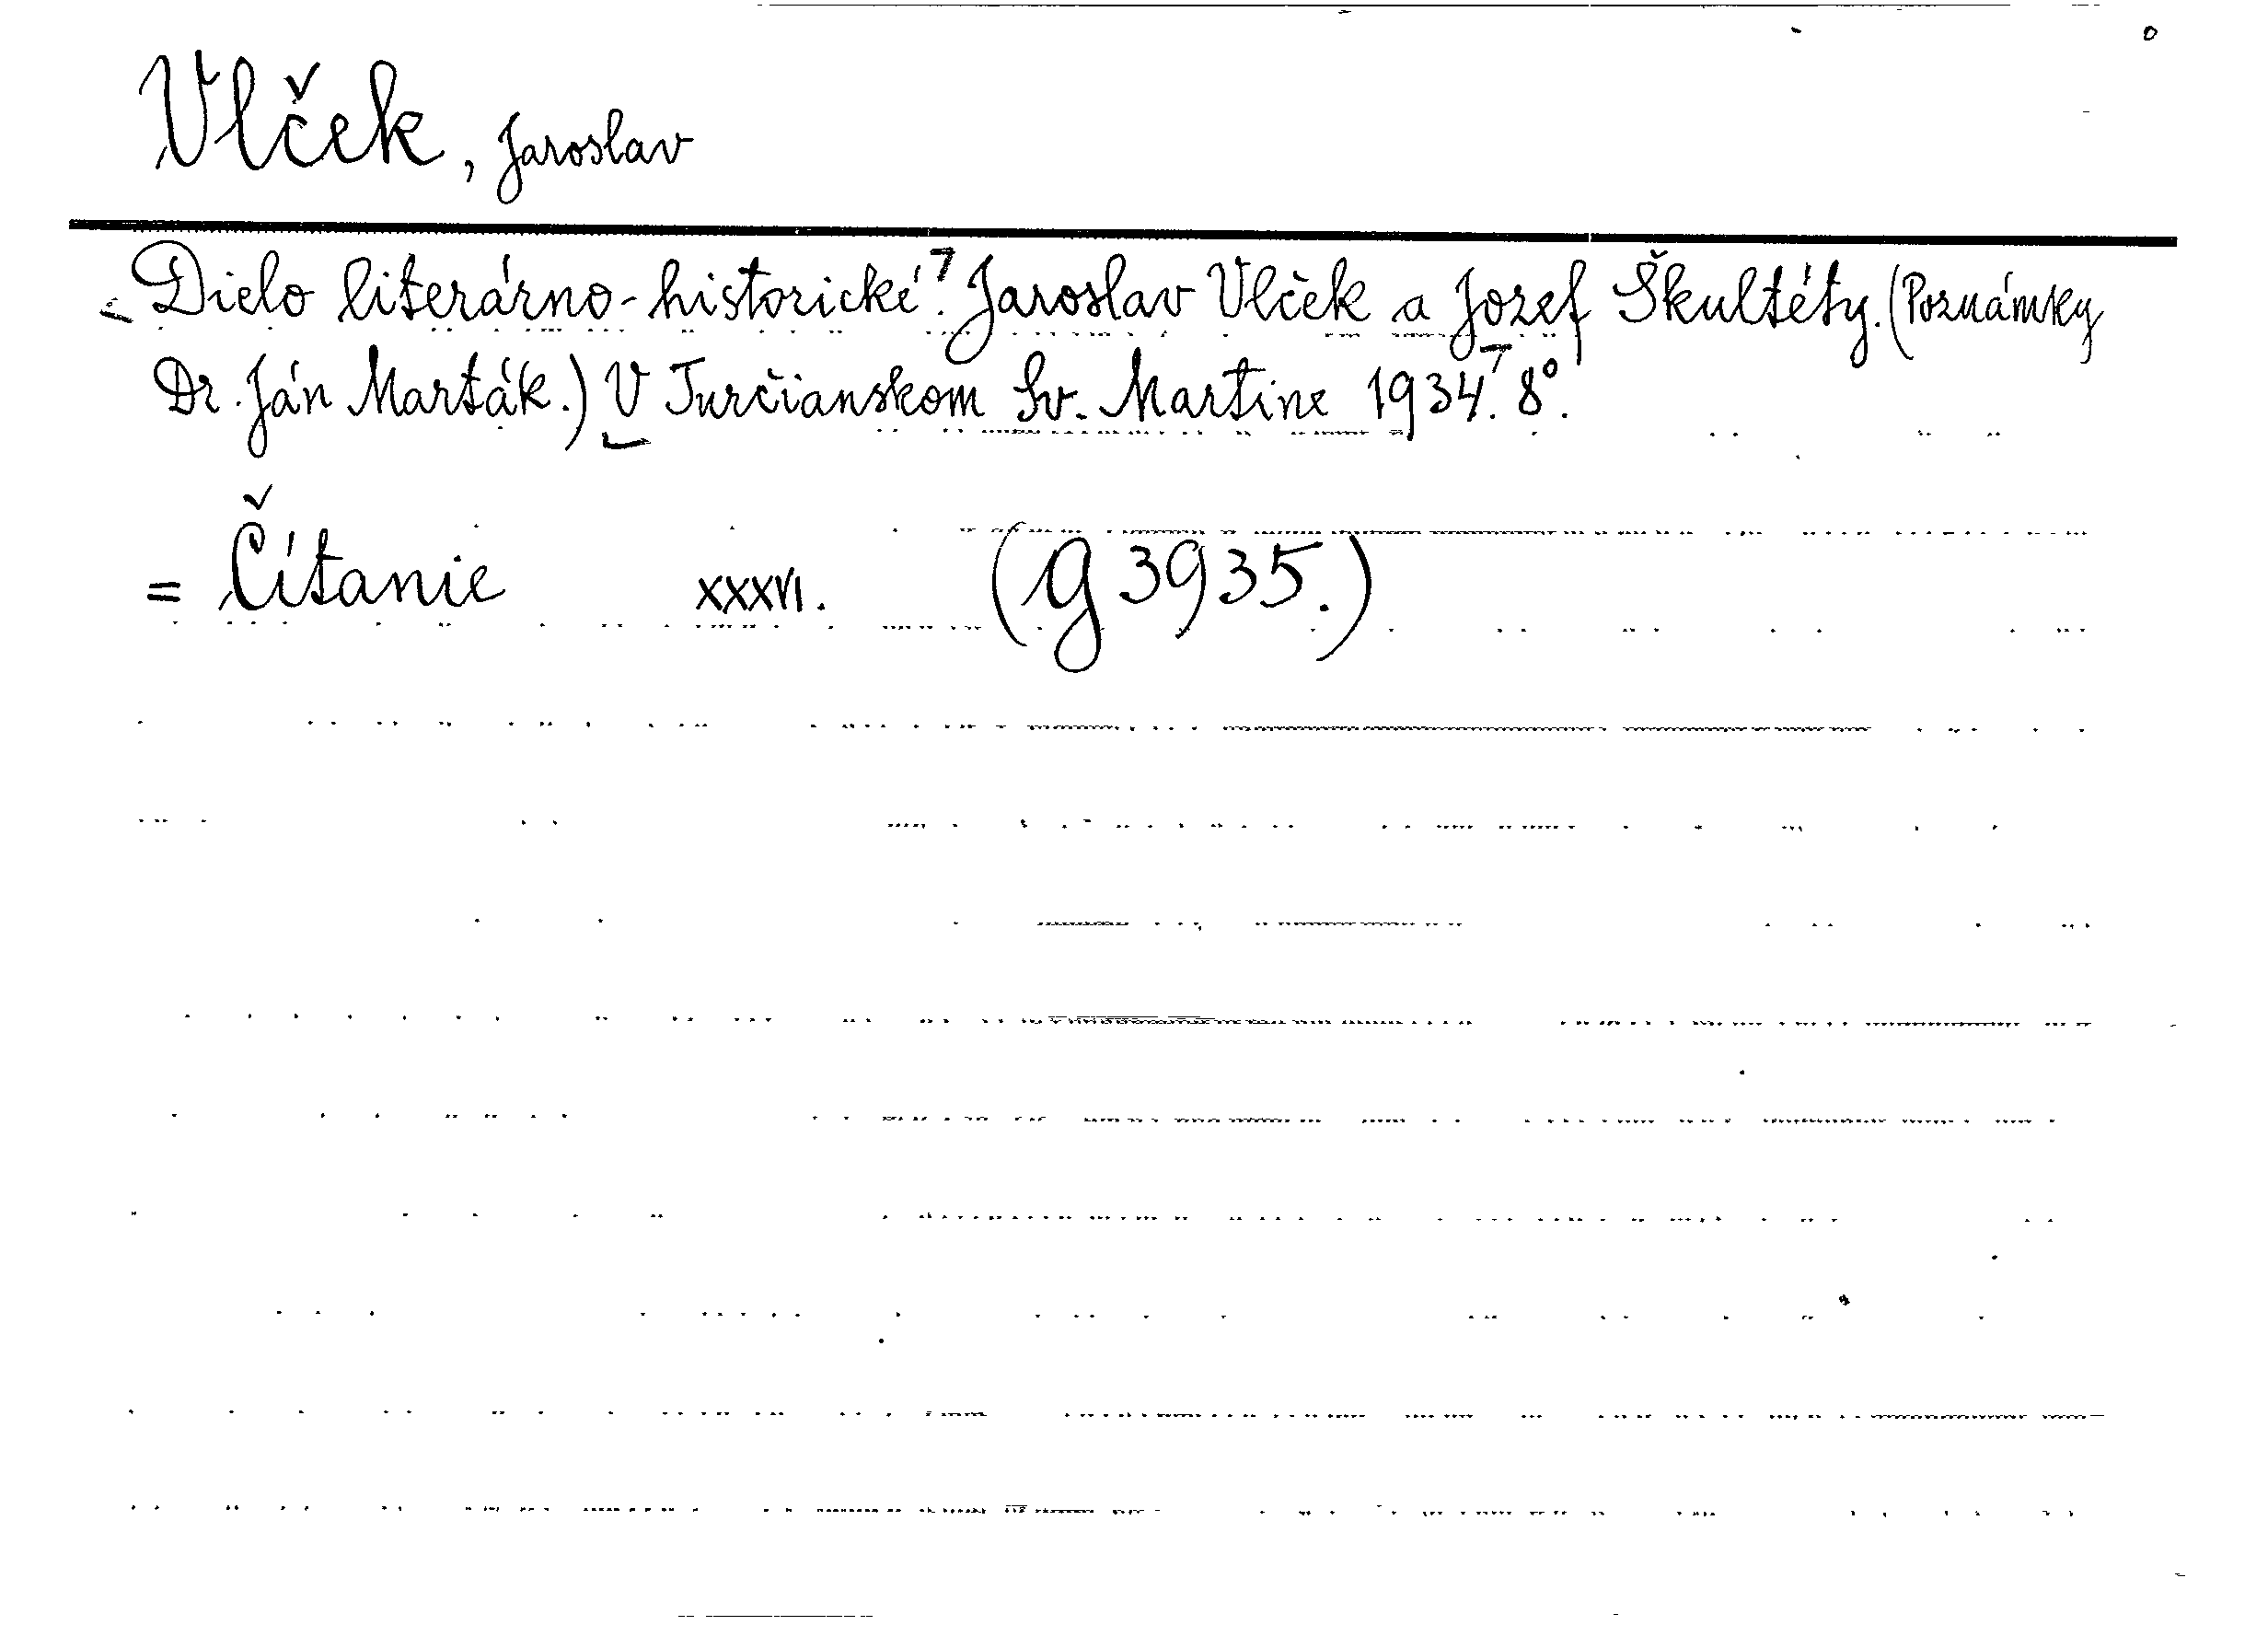 Vlček, Jaroslav
Dielo literárno-historické. Jaroslav Vlček a Jozef Škultéty. (Poznámky
Dr. Ján Marták.) V Turčianskom Sv. Martine 1934. 8°.
= Čítanie XXXVI. (g 3935.)